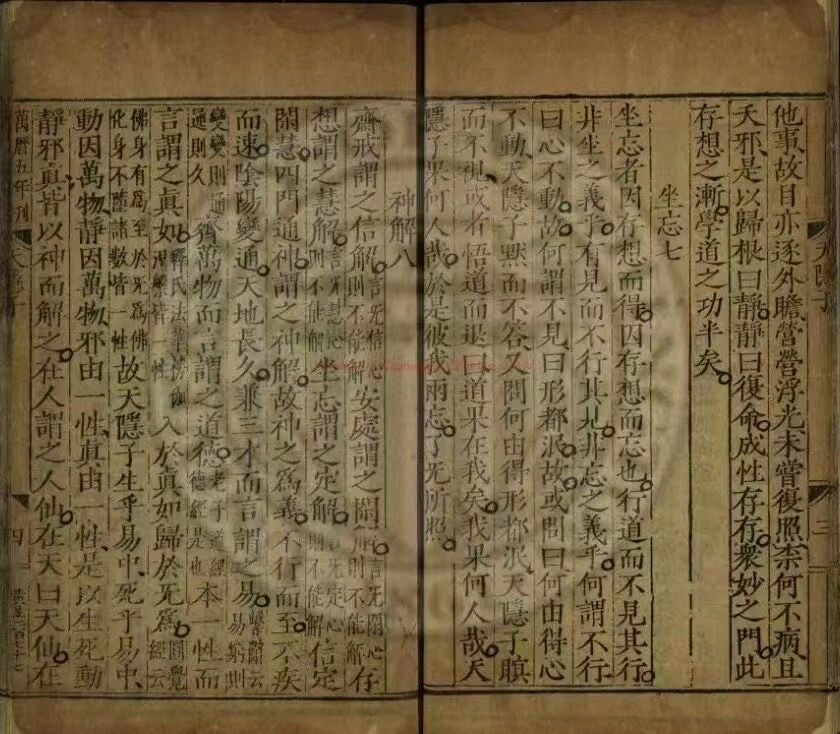 他事故目亦逐外瞻營營浮光未嘗復照柰何不病且
夭邪是以歸根曰靜靜曰復命成性存存衆妙之門此
存想之漸學道之功半矣
坐忘七
坐忘者因存想而得因存想而忘也行道而不見其行
非坐之義乎有見而不行其見非忘之義乎何謂不行
曰心不動故何謂不見曰形都泯故或問曰何由得心
不動天隱子默而不答又問何由得形都泯天隱子瞑
而不視或者悟道而退曰道果在我矣我果何人哉天
隱子果何人哉於是彼我兩忘了无所照
神解八
齋戒謂之信解言无信心則不能解安處謂之閑解言无閑心則不能解存
想謂之慧解言无慧心則不能解坐忘謂之定解言无定心則不能解信定
閑慧四門通神謂之神解故神之爲義不行而至不疾
而速陰陽變通天地長久兼三才而言謂之易繫辭云易窮則
變變則通通則久齊萬物而言謂之道德老子道經德經是也本一性而
言謂之真如釋氏法華楞伽涅槃皆一性入於真如歸於无爲圓覺經云
佛身有爲至於无爲佛化身不隨諸數皆一性故天隱子生乎易中死乎易中
動因萬物靜因萬物邪由一性真由一性是以生死動
靜邪真皆以神而解之在人謂之人仙在天曰天仙在
萬曆五年刊
天隱子
三
四